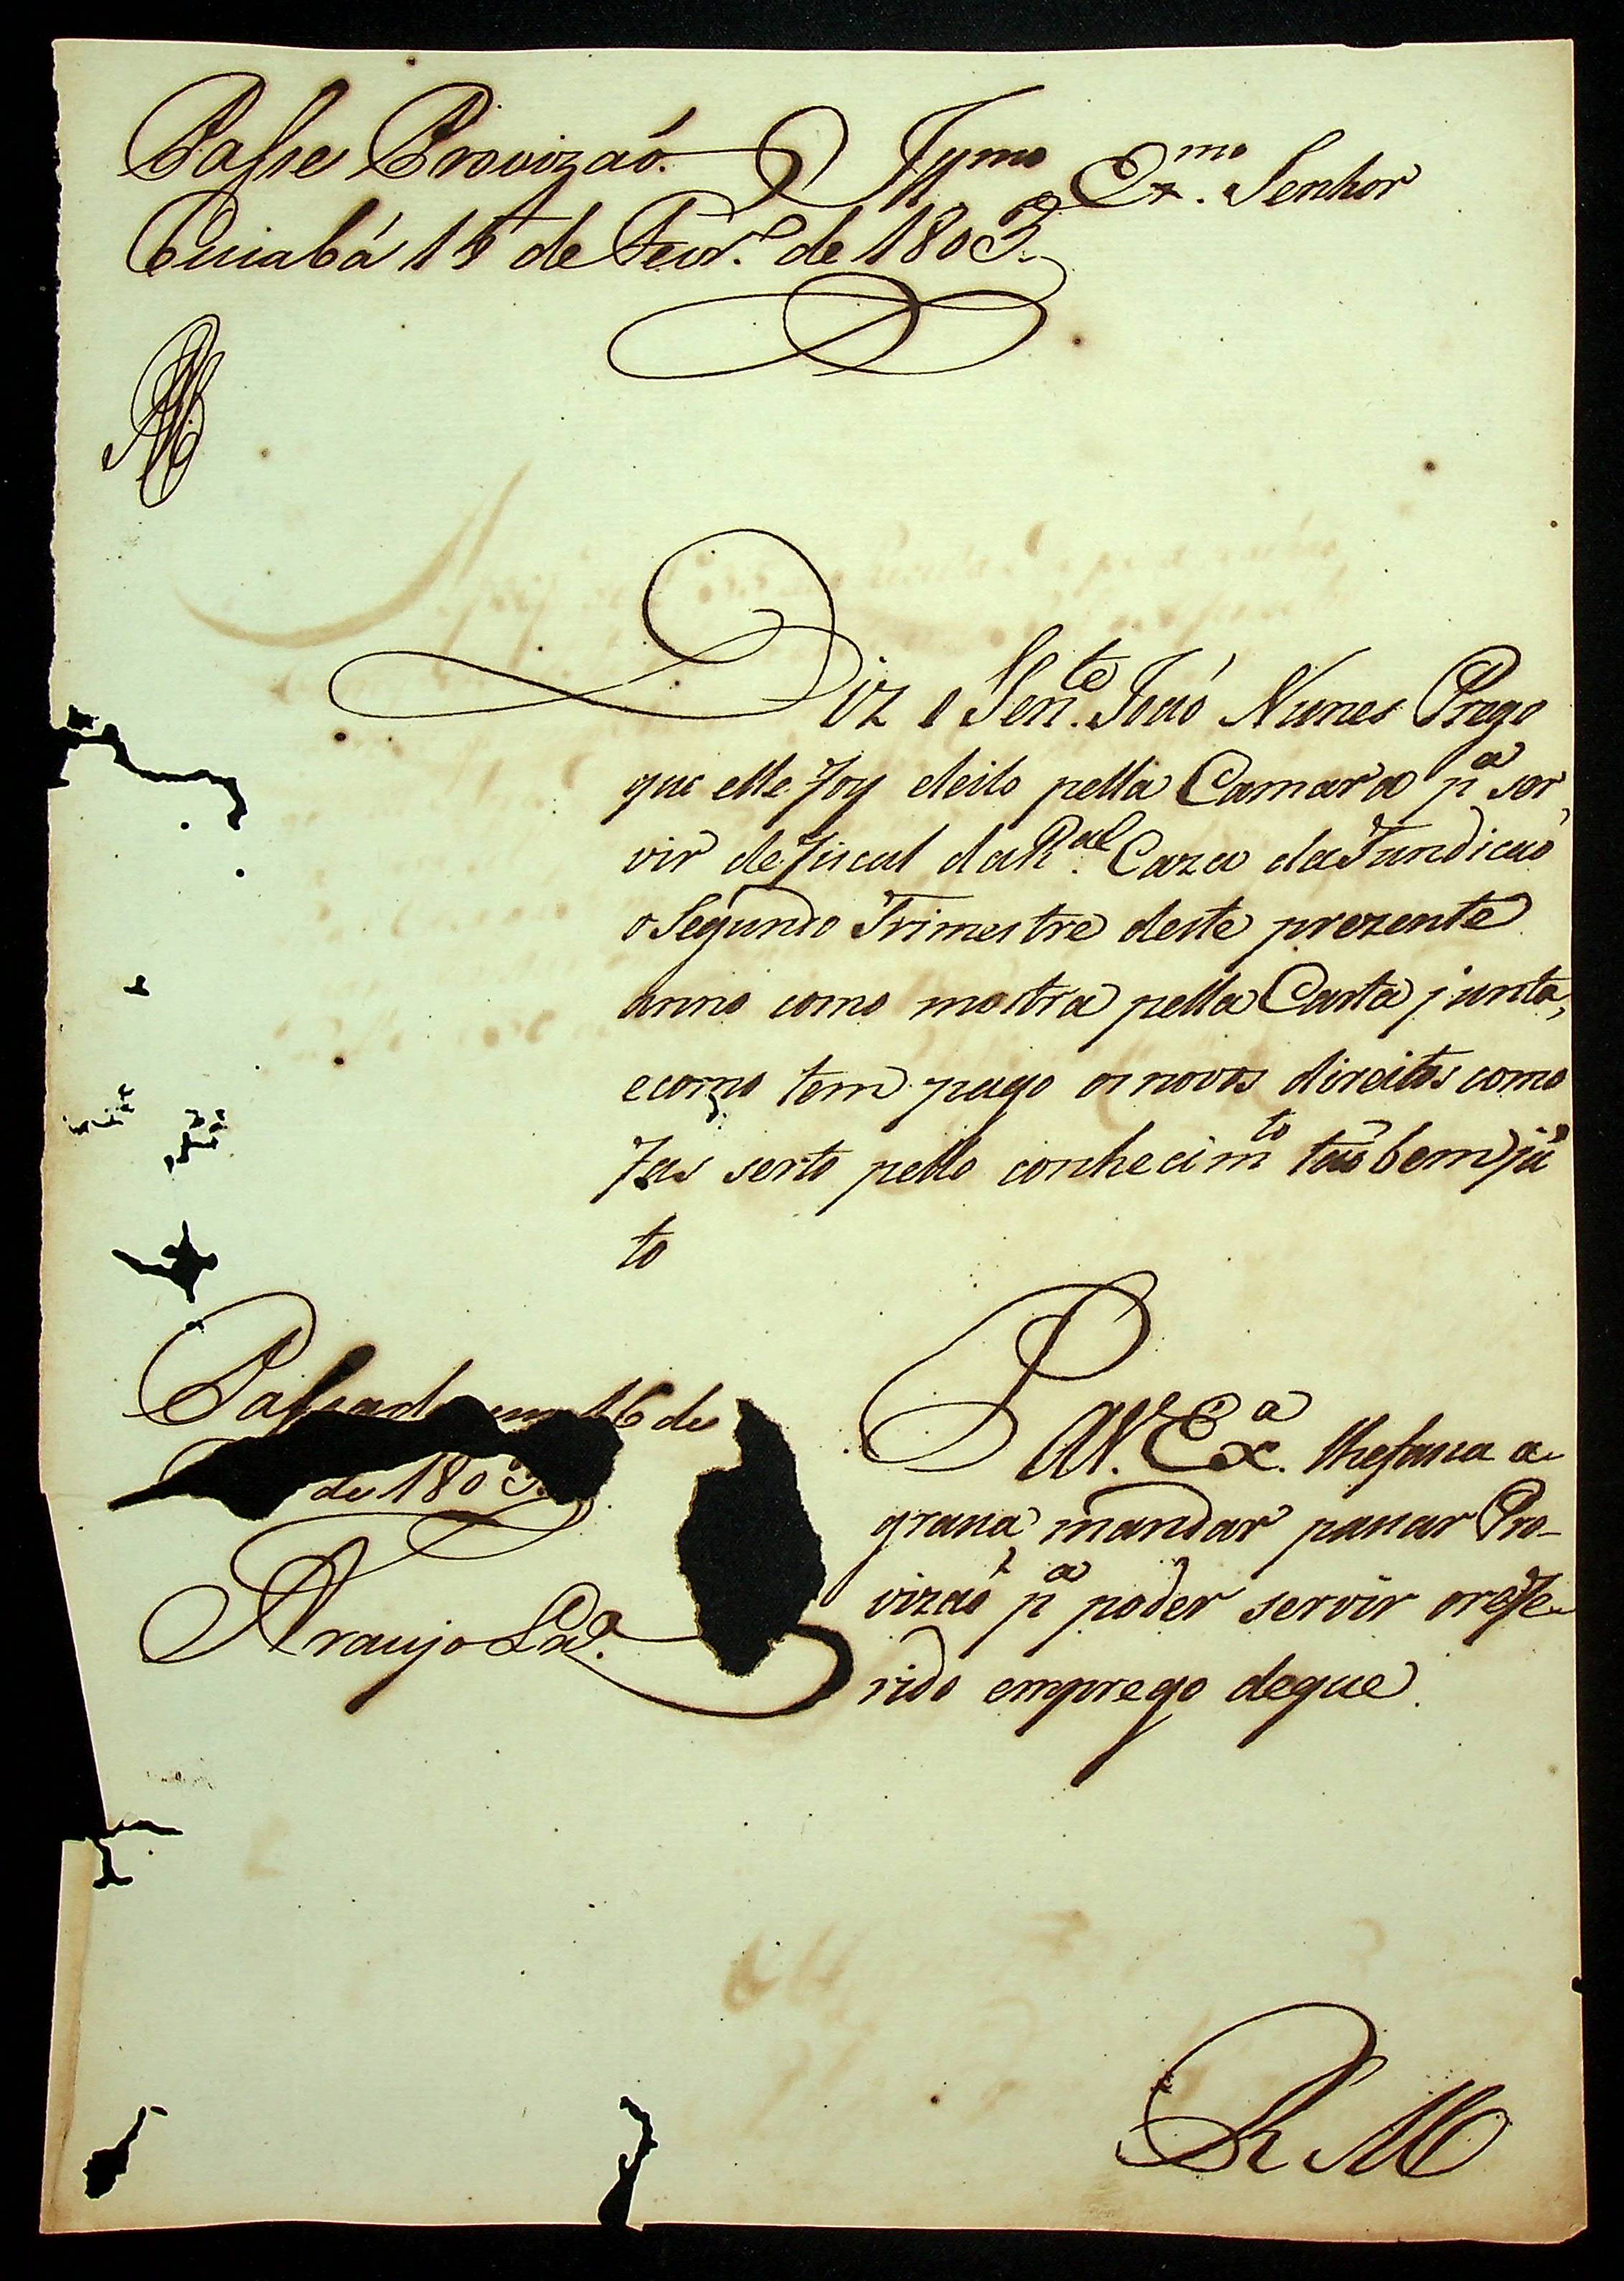 Passe Provizaó.
Cuiabá 15 de Fevr.º de 1803.
Illmo Exmo. Senhor
Diz o Ten.te Joaó Nunes Prego
que elle foy eleito pella Camara pa ser
vir de fiscal da R.al Caza da Fundicaó
o Segundo Trimestre deste prezente
anno como mostra pella Carta junta,
e como tem pago os novos direitos como
fas serto pello conhecimto taõ bem jũ
to
Passado em 16 de
de 1803.
Araujo
P
a V. Exa. lhe fassa a
grassa mandar passar Pro-
vizaó pa poder servir o refe-
rido emprego de que
R M